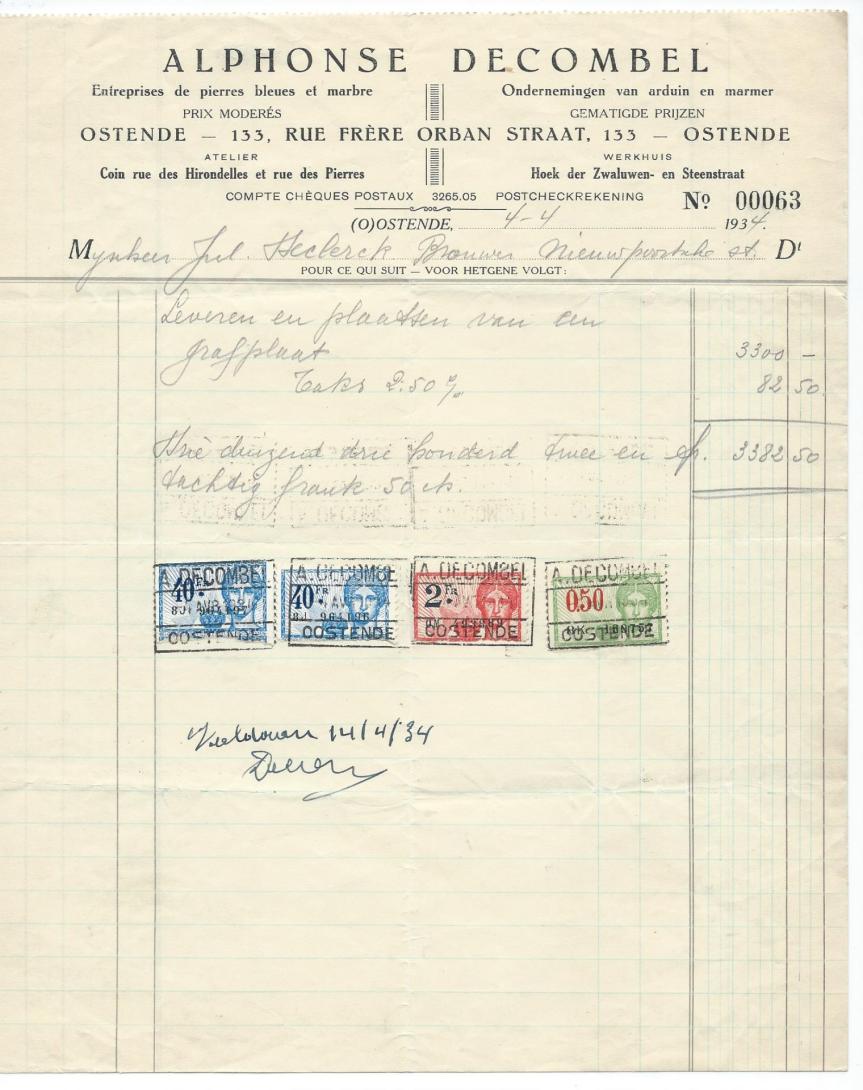 ALPHONSE DECOMBEL
Entreprises de pierres bleues et marbre
Ondernemingen van arduin en marmer
PRIX MODERÉS
GEMATIGDE PRIJZEN
OSTENDE — 133, RUE FRÈRE ORBAN STRAAT, 133 — OSTENDE
ATELIER
WERKHUIS
Coin rue des Hirondelles et rue des Pierres
Hoek der Zwaluwen- en Steenstraat
COMPTE CHÈQUES POSTAUX 3265.05 POSTCHECKREKENING
No 00063
(O)OSTENDE, 4-4 1934.
Mynheer Jul. Declerck Brouwer Nieuwpoortsche st. Dt
POUR CE QUI SUIT — VOOR HETGENE VOLGT:
Leveren en plaatsen van een
grafplaat 3300 —
Taks 2.50 % 82 50
Drie duizend drie honderd twee en fr. 3382 50
tachtig frank 50 ct.
A. DECOMBEL
40 FR
OOSTENDE
A. DECOMBE
40 FR
OOSTENDE
A. DECOMBEL
2 FR
OOSTENDE
A. DECOMBEL
0.50
OOSTENDE
Voldaan 14/4/34